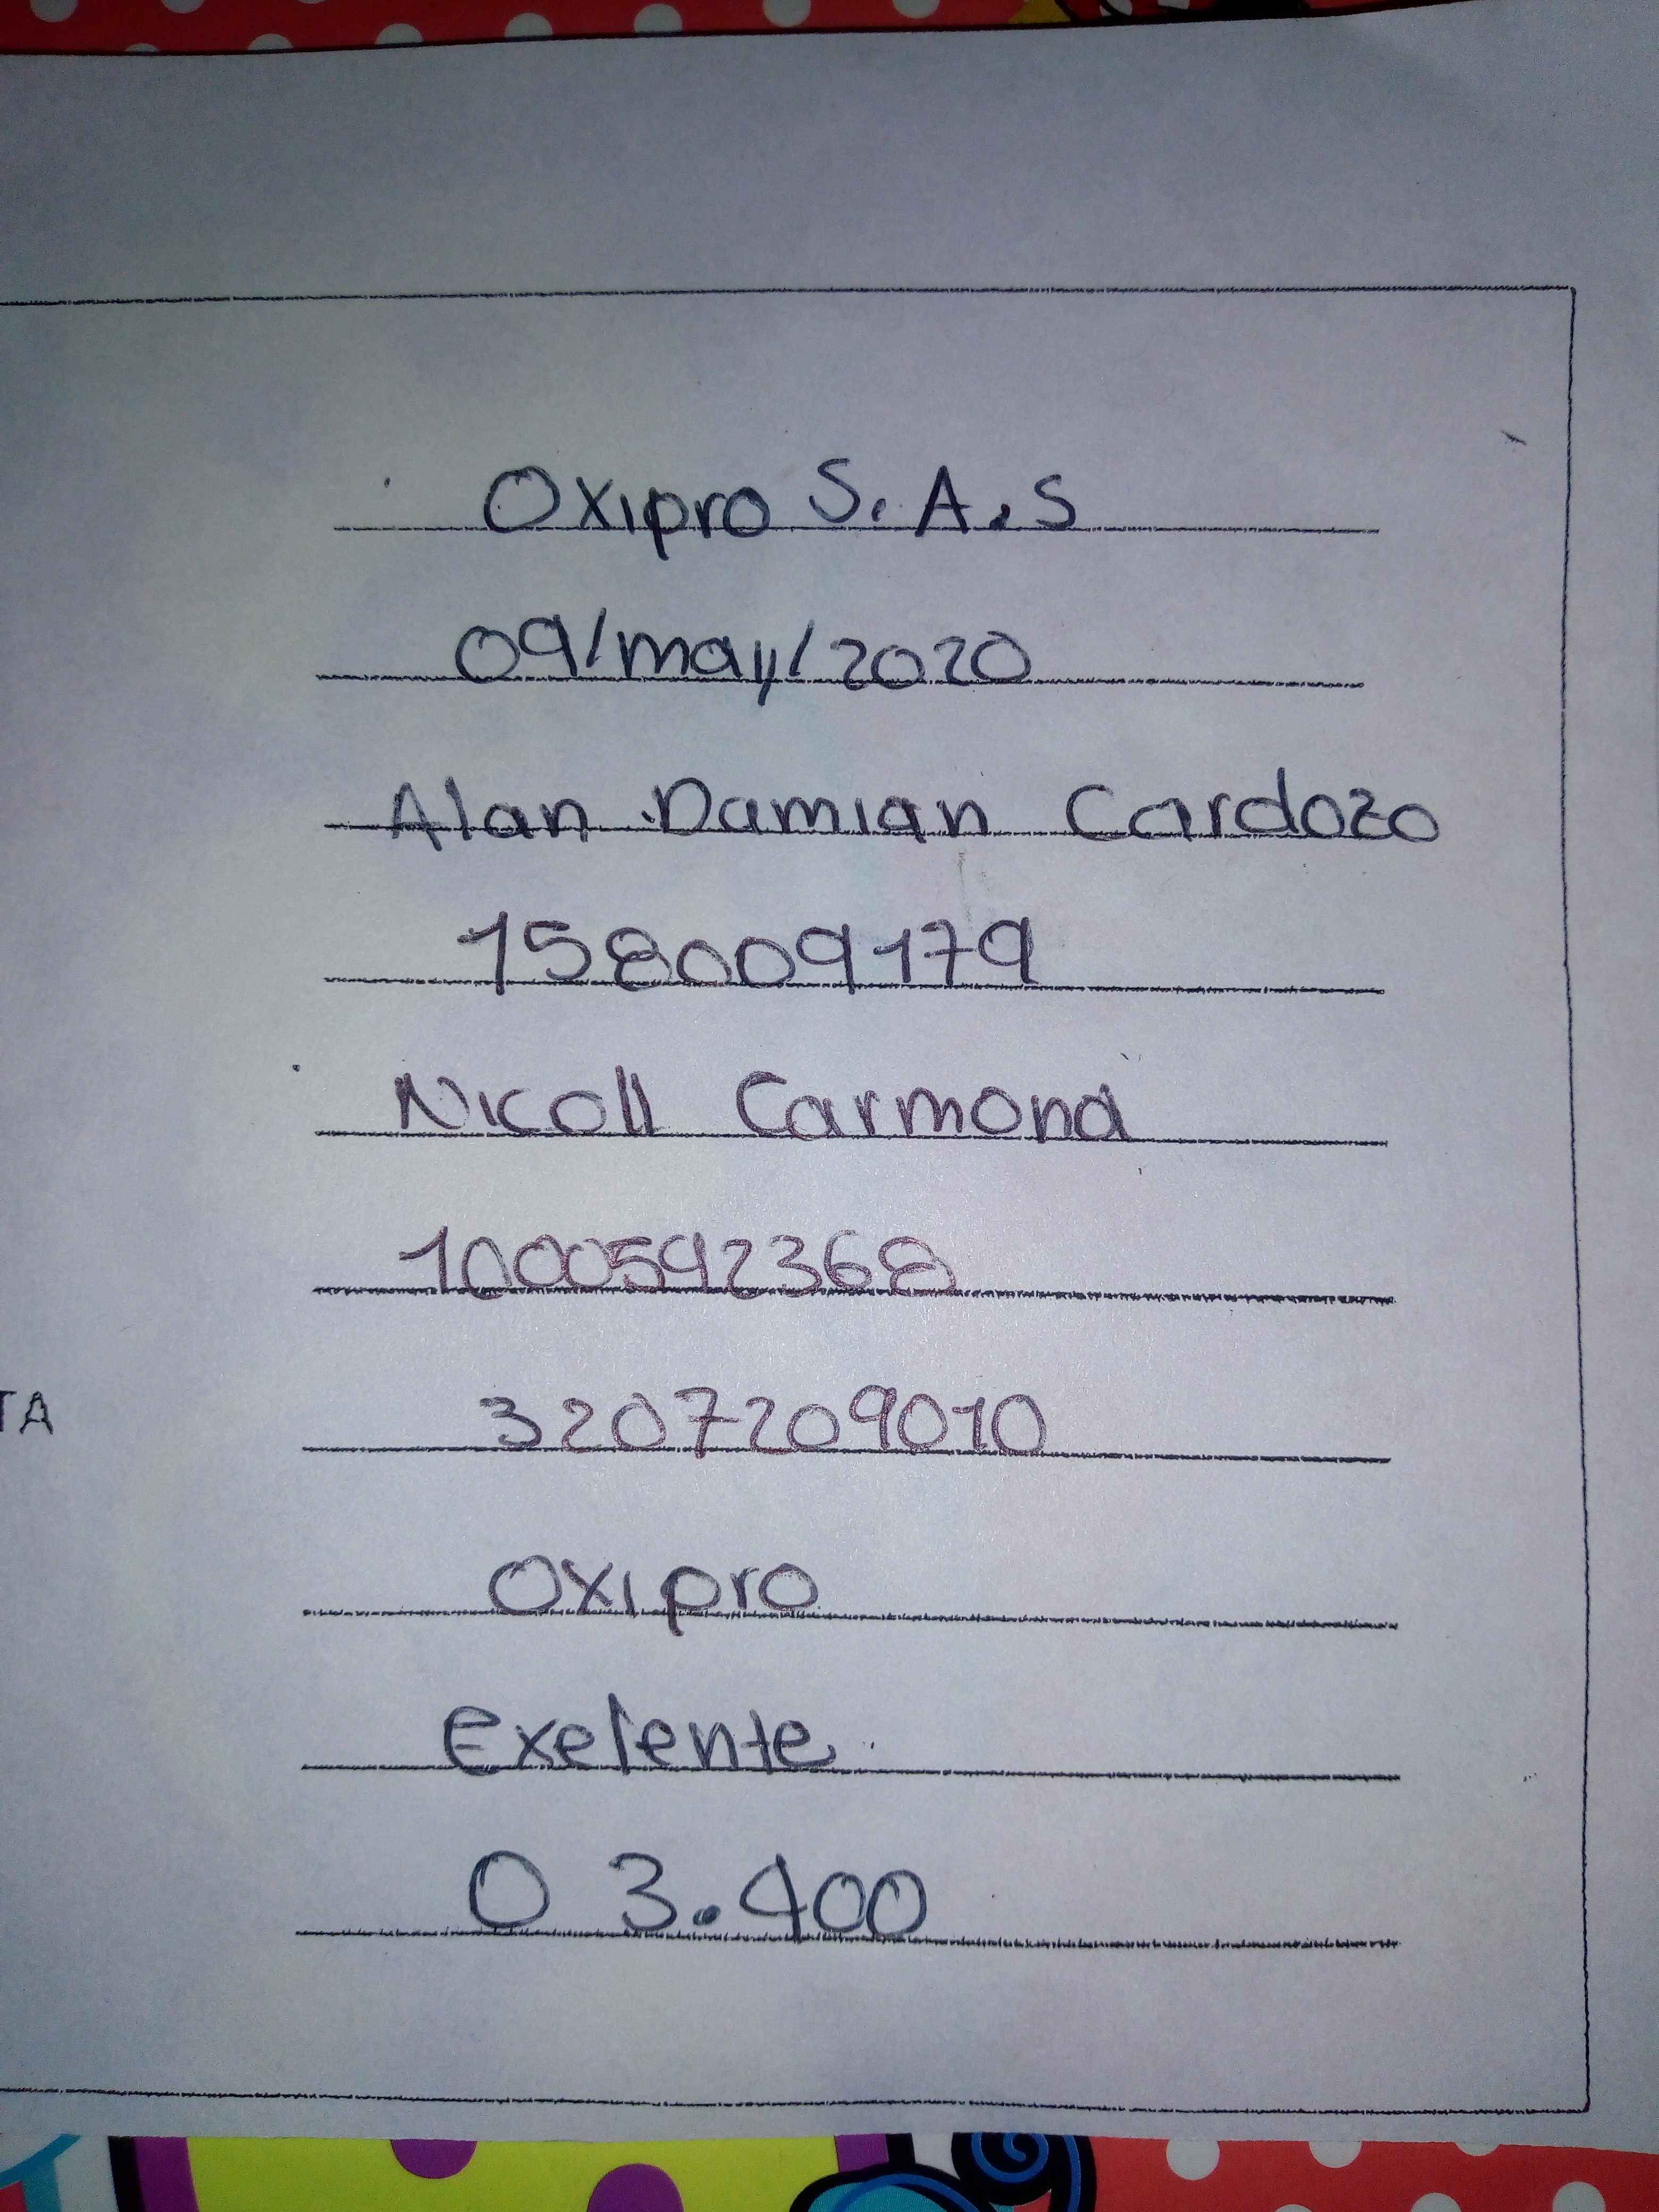 Oxipro S.A.S
09/may/2020
Alan Damian Cardozo
158009179
Nicoll Carmona
1000592368
TA
3207209010
Oxipro
Exelente
0 3.400